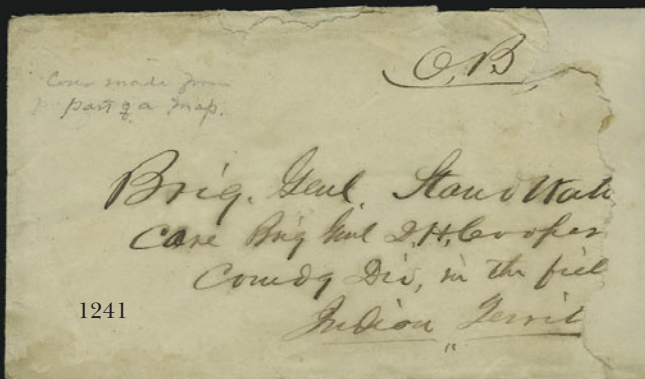 O,B
Cover made from
part of a map.
Brig. Genl. Stand Wati
Care Brig Genl D.H. Cooper
Comdg Div, in the fiel
Indian Territ
1241